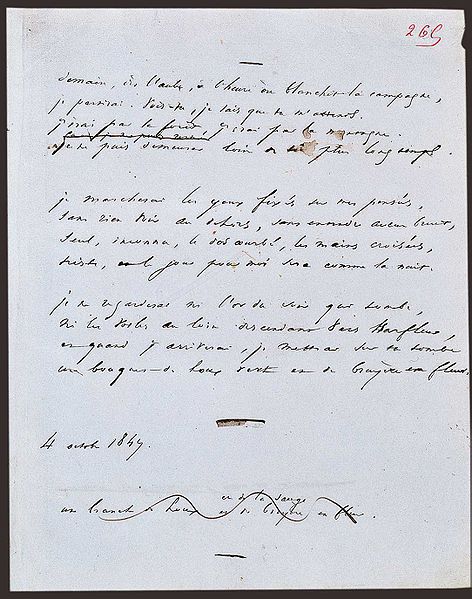 265
demain, dès l'aube, à l'heure où blanchit la campagne,
je partirai. Vois-tu, je sais que tu m'attends.
j'irai par la forêt, j'irai par la montagne.
je ne puis demeurer loin de toi plus longtemps.
je marcherai les yeux fixés sur mes pensées,
sans rien voir au dehors, sans entendre aucun bruit,
seul, inconnu, le dos courbé, les mains croisées,
triste, et le jour pour moi sera comme la nuit.
je ne regarderai ni l'or du soir qui tombe,
ni les voiles au loin descendant vers Harfleur,
et quand j'arriverai, je mettrai sur ta tombe
un bouquet de houx vert et de bruyère en fleur.
4 octobre 1847.
et de la sauge
un branche de houx et de bruyère en fleur.